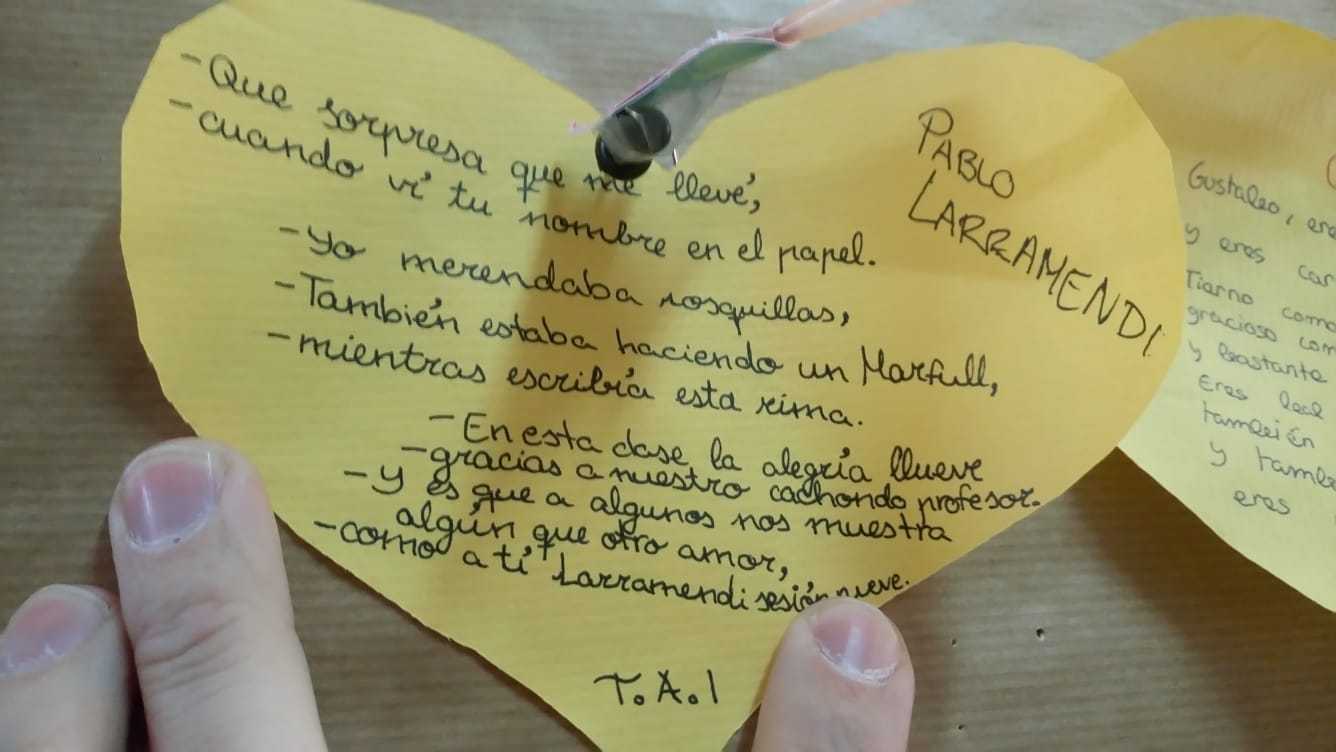 - Que sorpresa que me llevé,
- cuando ví tu nombre en el papel.
- Yo merendaba rosquillas,
- También estaba haciendo un Marfull,
- mientras escribía esta rima.
- En esta clase la alegría llueve
- gracias a nuestro cachondo profesor.
- y es que a algunos nos muestra
algún que otro amor,
- como a tí Larramendi sesión nueve.
T.A.I
PABLO
LARRAMENDI
Gustaleo, ere
y eres car
Tierno como
gracioso com
y bastante
Eres leal
también
y tambié
eres